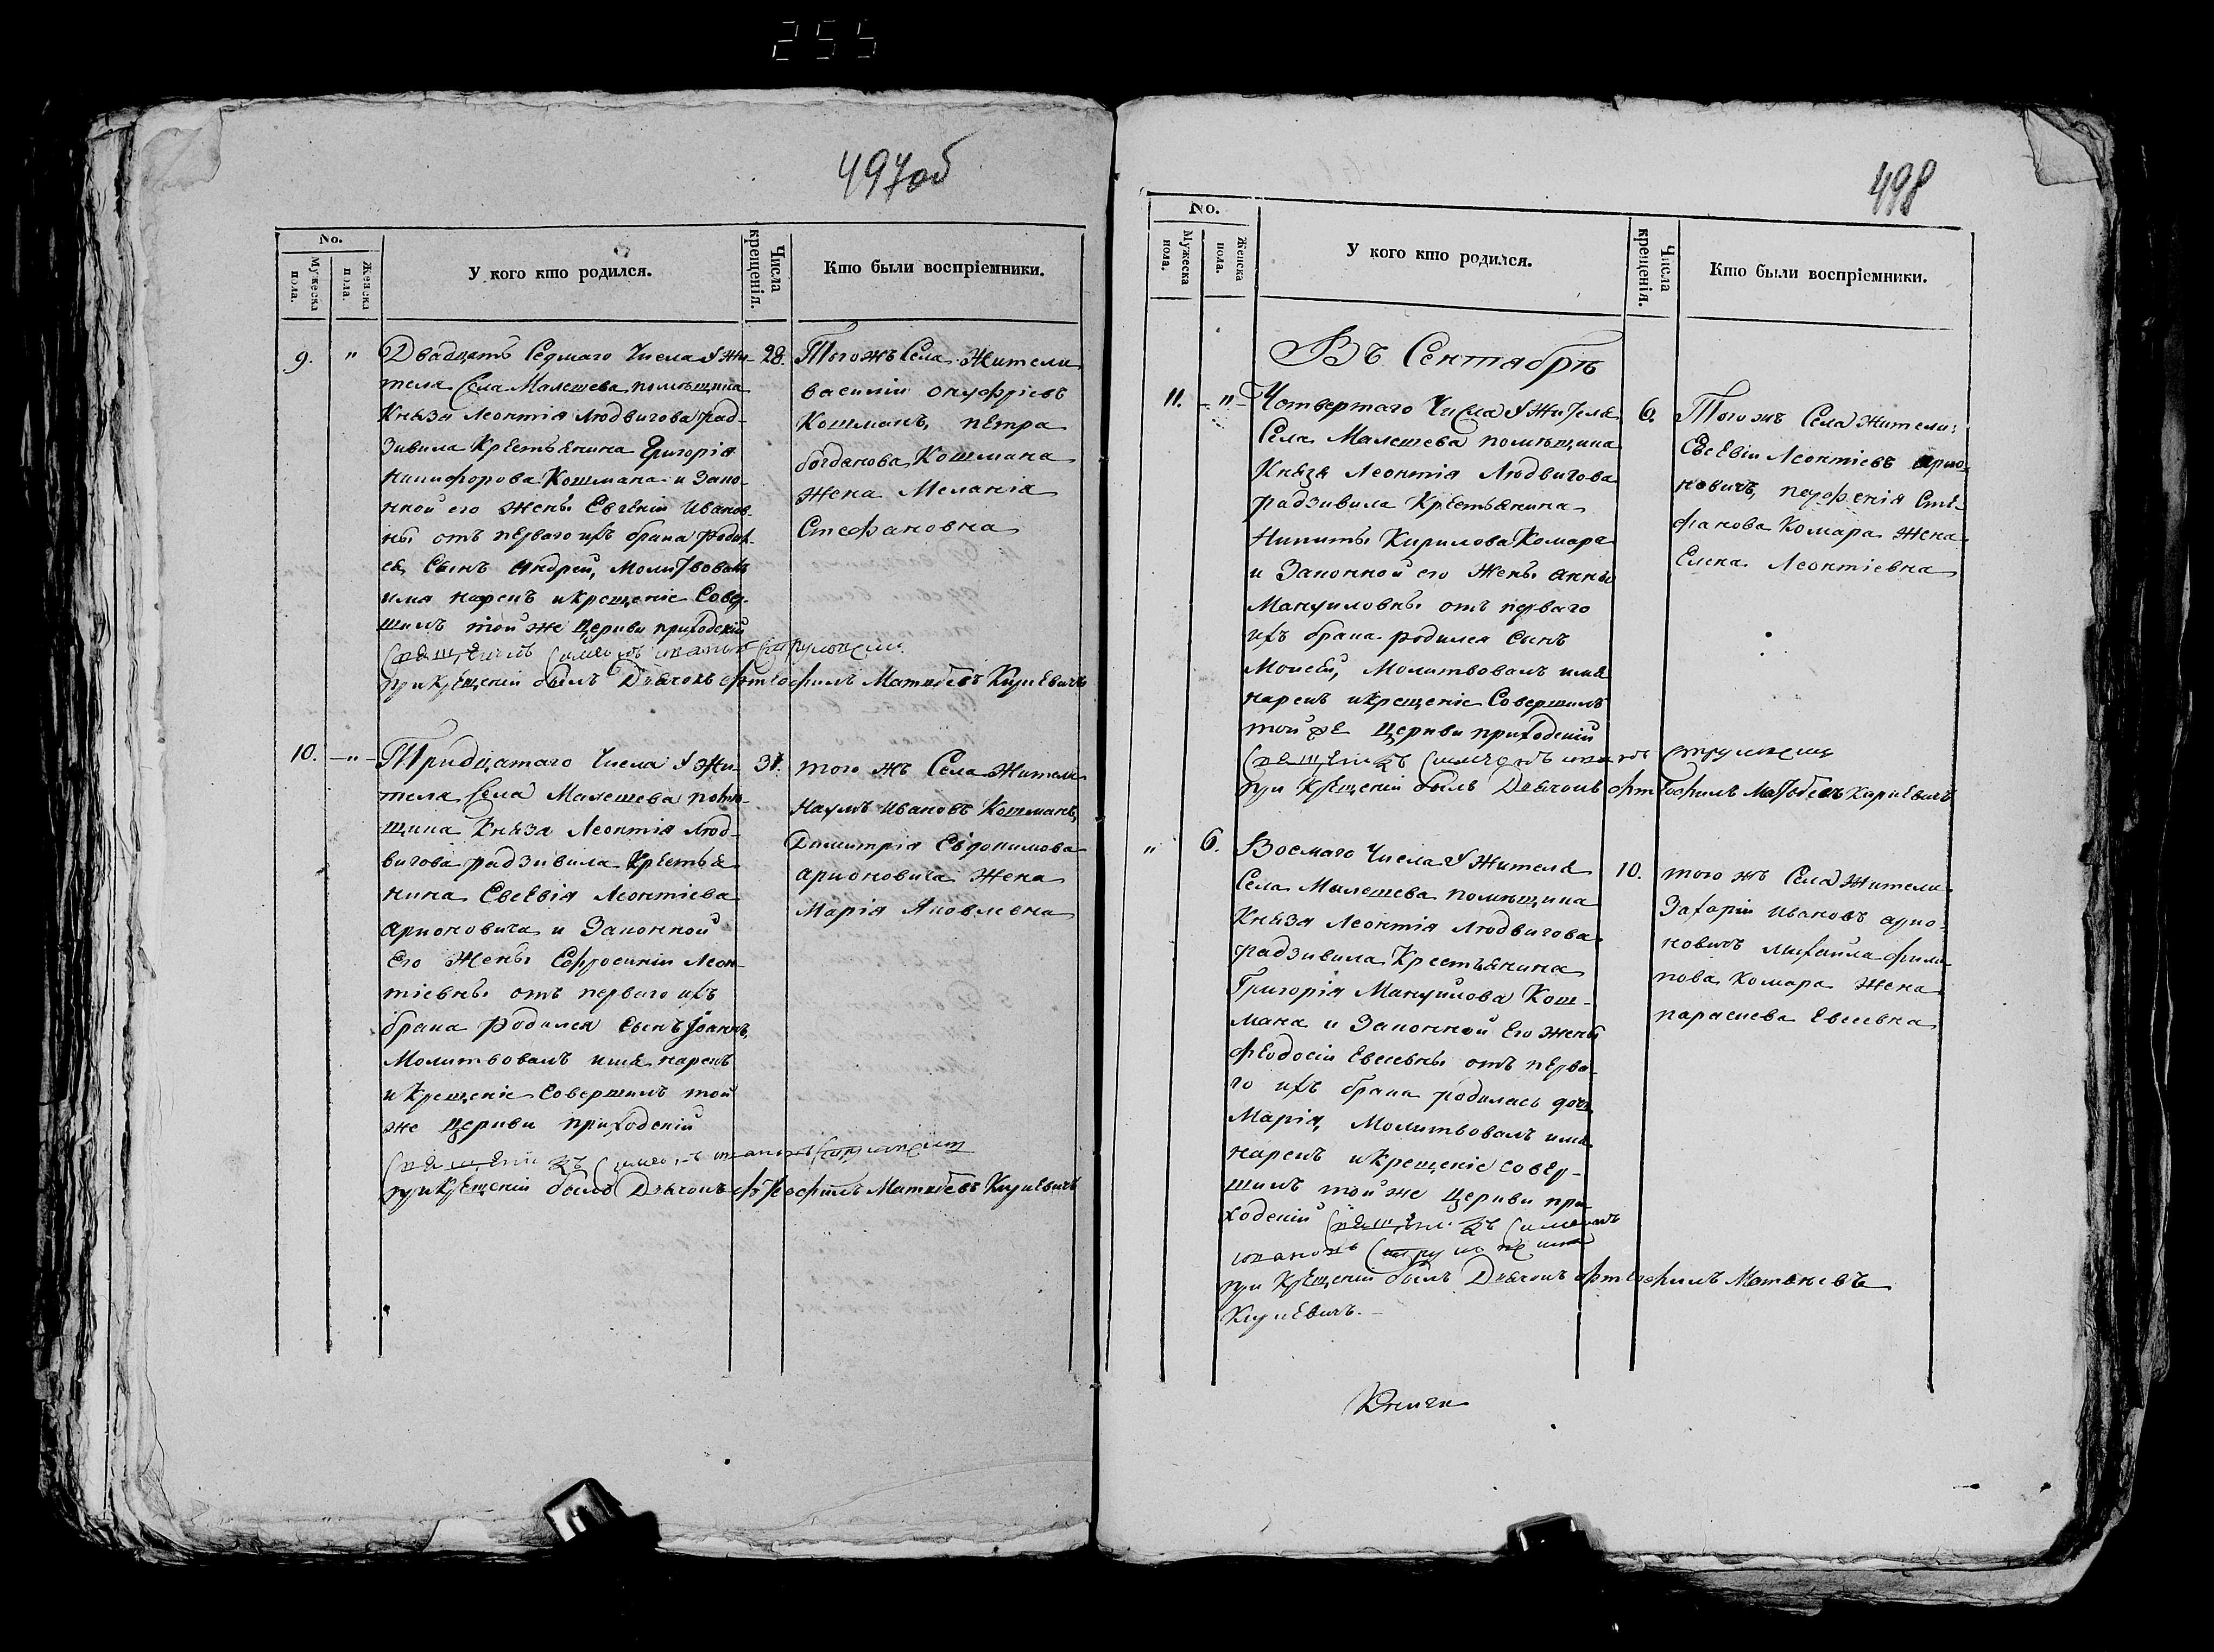 255
497об
No.
Мужеска пола.
Женска пола.
У кого кто родился.
Числа крещенія.
Кто были воспріемники.
9. "
Двадцать Седмаго Числа У Жи-
теля Села Малешева помѣщика
Князя Леонтія Людвигова рад-
зивила Крестьянина Григорія
Никифорова Кошмана и Зако-
нной его жены Евгеніи Иванов-
ны отъ перваго ихъ брака родил-
ся Сынъ Андрей, Молитвовалъ
имя нарекъ и Крещеніе Совер-
шилъ той же Церкви приходскій
при Крещеніи былъ Дьячокъ Феофилъ Матвѣевъ Кириевичъ
28.
Того жъ Села Жители
василій онуфріевъ
Кошманъ, петра
богданова Кошмана
Жена Меланія
Стефановна
10. "
Тридцатаго Числа У Жи-
теля Села Малешева помѣ-
щика Князя Леонтія Люд-
вигова радзивила Крестья
нина Евсевія Леонтіева
Арионовича и Законной
Его Жены Ефросиніи Леон-
тіевны отъ перваго ихъ
брака родился Сынъ Іоаннъ,
Молитвовалъ имя нарекъ
и Крещеніе Совершилъ той
же Церкви приходскій
при Крещеніи былъ Дьячокъ Феофилъ Матвѣевъ Кириевичъ
31.
того жъ Села Жители
Наумъ Ивановъ Кошманъ,
Димитрія Евдокимова
арионовича Жена
Марія Яковлевна
498
No.
Мужеска пола.
Женска пола.
У кого кто родился.
Числа крещенія.
Кто были воспріемники.
Въ Сентябрѣ
11. "
Четвертаго Числа У Жителя
Села Малешева помѣщика
Князя Леонтія Людвигова
радзивила Крестьянина
Никиты Кирилова Комара
и Законной его Жены анны
Мануиловны отъ перваго
ихъ брака родился Сынъ
Моисей, Молитвовалъ имя
нарекъ и Крещеніе Совершилъ
той же Церкви приходскій
при Крещеніи былъ Дьячокъ Феофилъ Матвѣевъ Кириевичъ
6.
Того жъ Села Жители:
Евсевій Леонтіевъ арио-
новичъ, Сте-
фанова Комара Жена
Елена Леонтіевна
" 6.
Восмаго Числа У Жителя
Села Малешева помѣщика
Князя Леонтія Людвигова
радзивила Крестьянина
Григорія Мануйлова Кош-
мана и Законной Его жены
Феодосіи Евсевны отъ перва-
го ихъ брака родилась дочь
Марія, Молитвовалъ имя
нарекъ и Крещеніе совер-
шилъ той же Церкви при-
ходскій
при Крещеніи былъ Дьячокъ Феофилъ Матвѣевъ
Кириевичъ.
10.
того жъ Села Жители
Захарій Ивановъ арио-
новичъ Михайла фили-
пова Комара Жена
параскева Евсевна